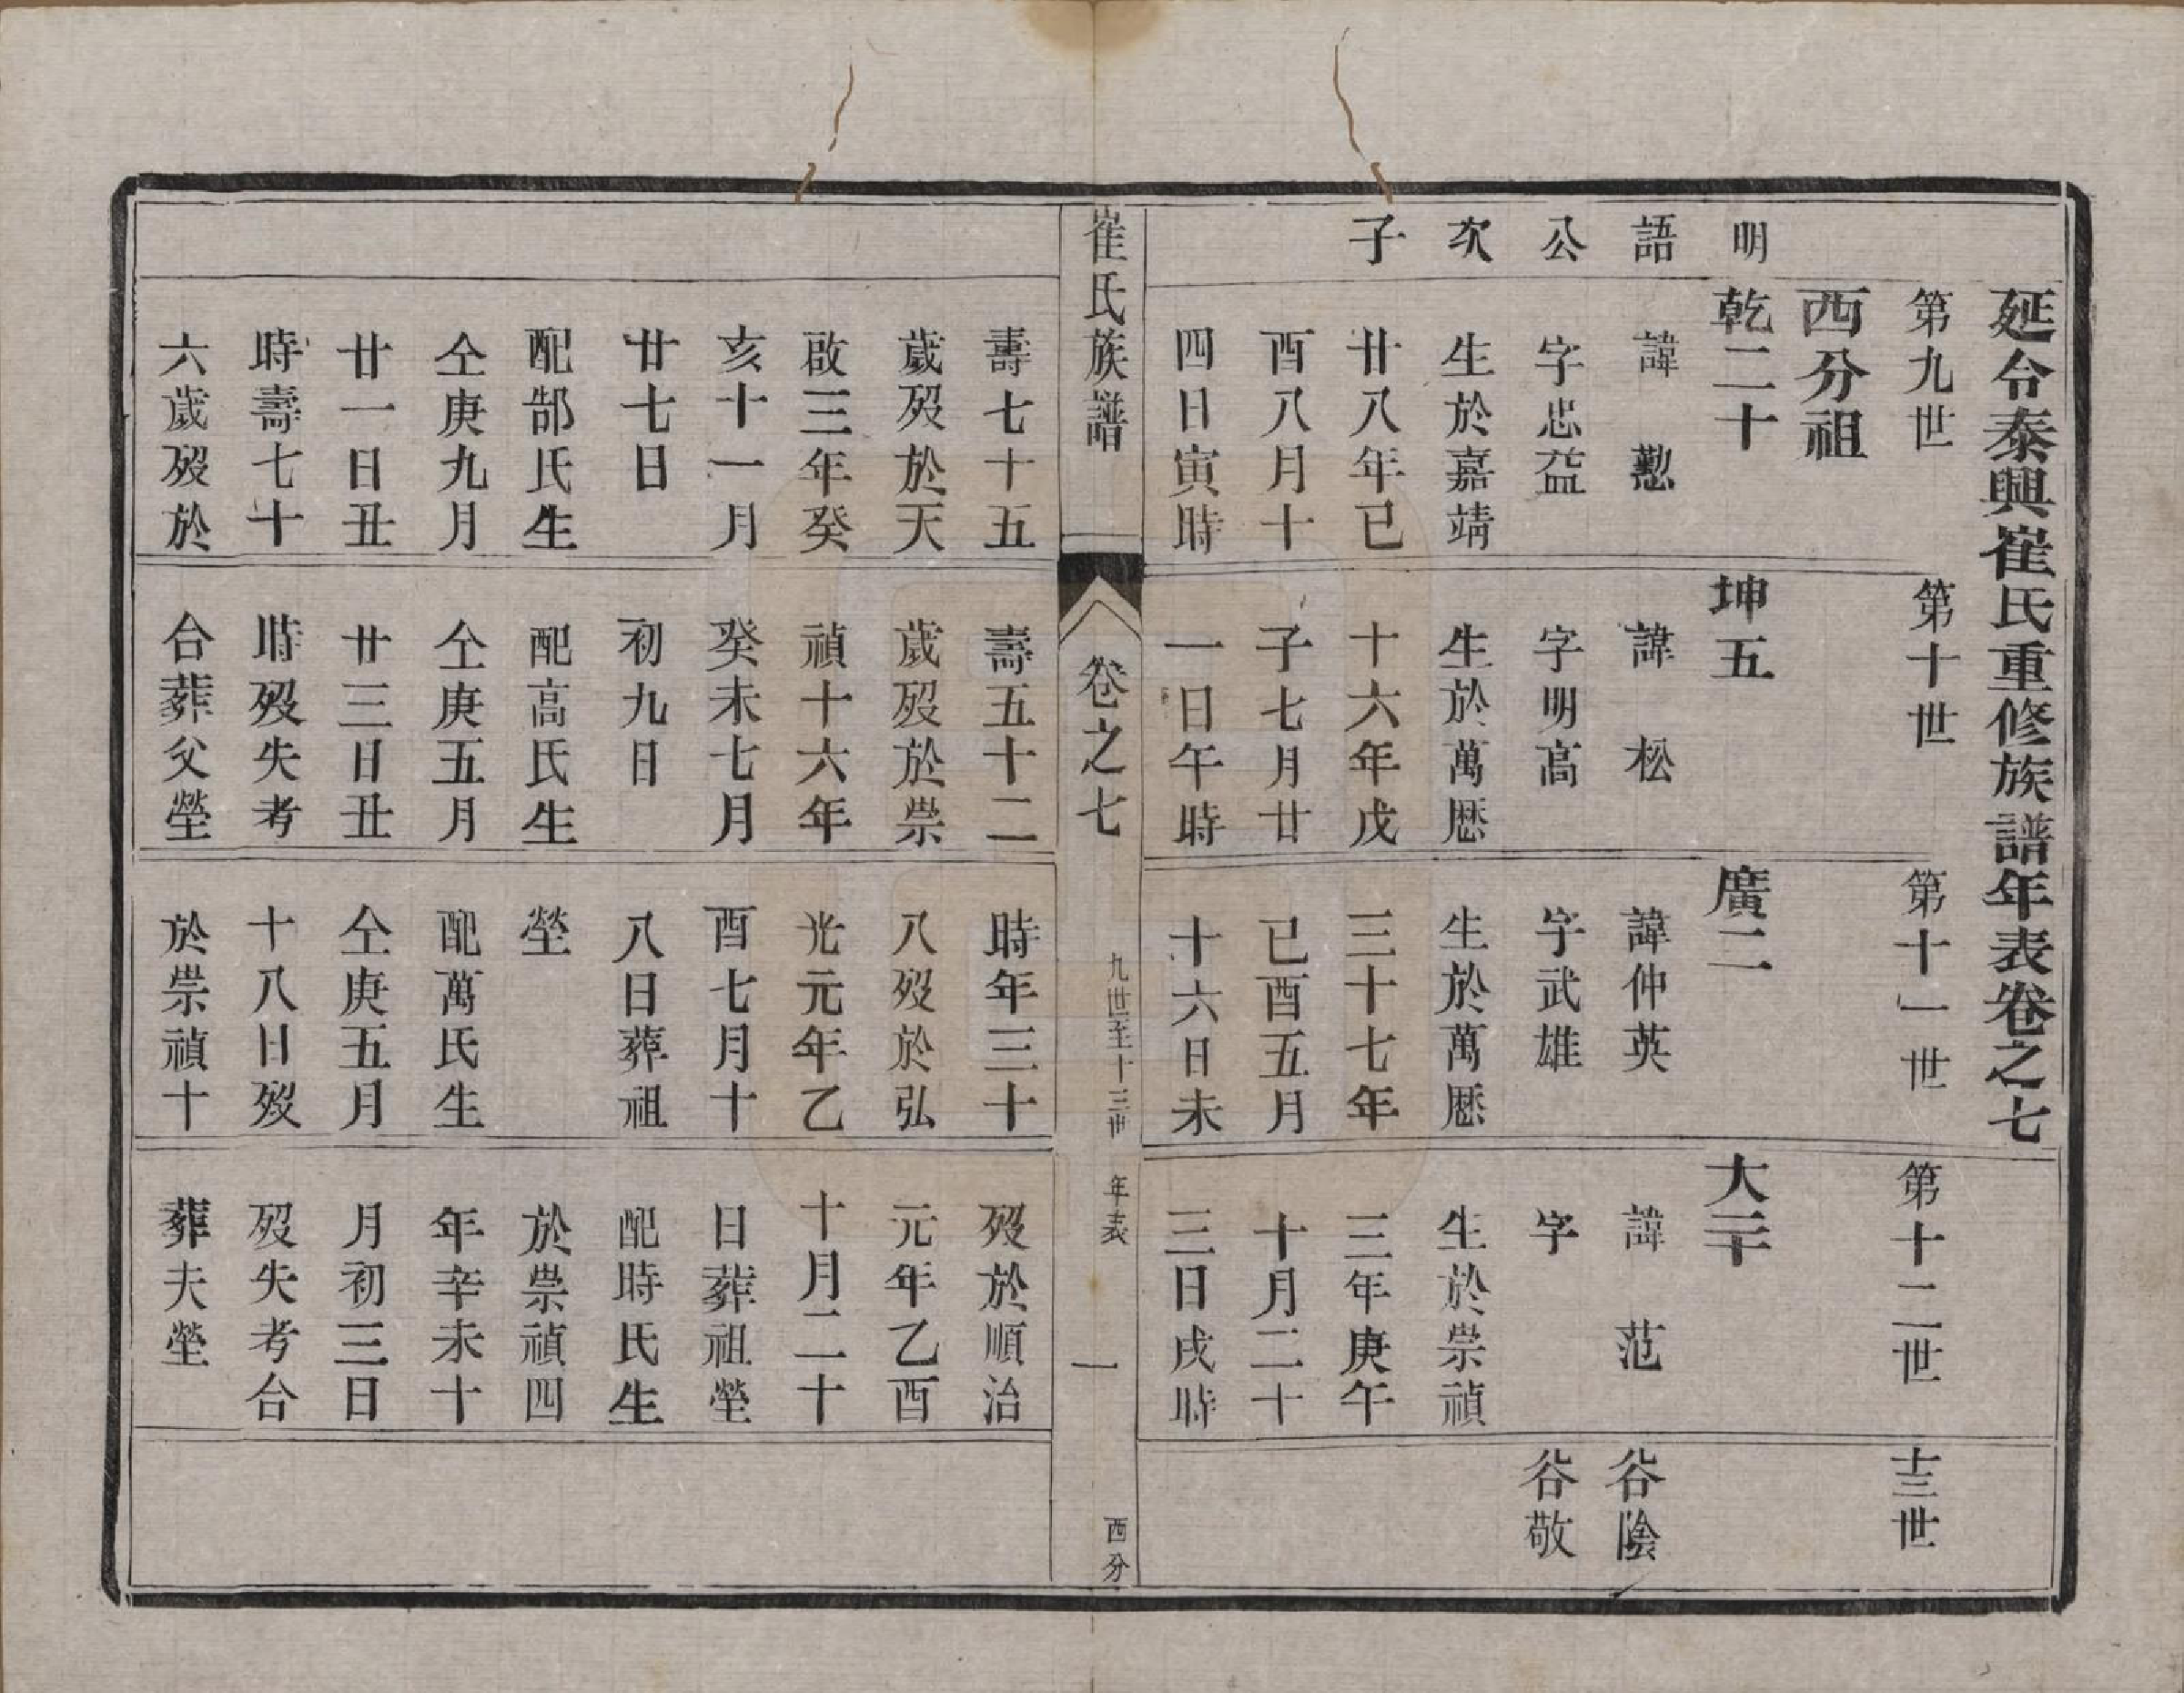 延令泰興崔氏重修族譜年表卷之七
第九世
第十世
第十一世
第十二世
十三世
西分祖
明
語
公
次
子
乾二十
諱懃
字忠益
生於嘉靖
廿八年已
酉八月十
四日寅時
壽七十五
歲殁於天
啟三年癸
亥十一月
廿七日
配郜氏生
仝庚九月
廿一日丑
時壽七十
六歲殁於
坤五
諱松
字明高
生於萬厯
十六年戊
子七月廿
一日午時
壽五十二
歲殁於崇
禎十六年
癸未七月
初九日
配高氏生
仝庚五月
廿三日丑
時殁失考
合葬父塋
廣二
諱仲英
字武雄
生於萬厯
三十七年
已酉五月
十六日未
時年三十
八殁於弘
光元年乙
酉七月十
八日葬祖
塋
配萬氏生
仝庚五月
十八日殁
於崇禎十
大二十
諱范
字
生於崇禎
三年庚午
十月二十
三日戌時
殁於順治
元年乙酉
十月二十
日葬祖塋
配時氏生
於崇禎四
年辛未十
月初三日
殁失考合
葬夫塋
谷陰
谷敬
崔氏族譜
卷之七
九世至十三世
年表
一
西分